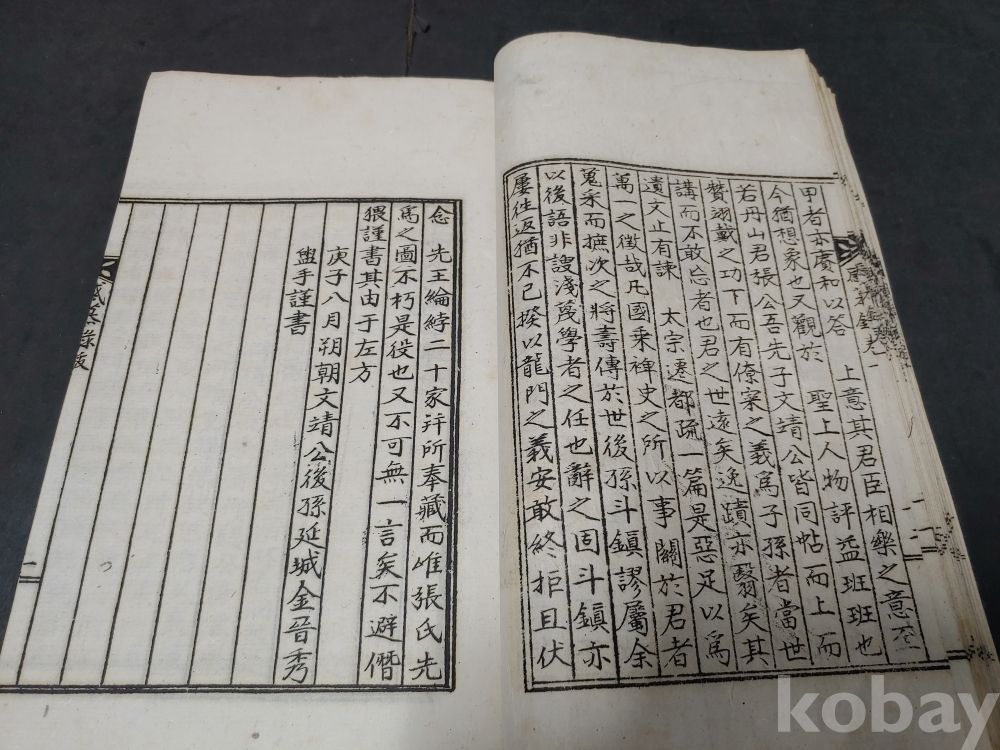 甲者亦賡和以答　上意其君臣相樂之意至
今猶想象也又觀於　聖上人物評益班班也
若丹山君張公吾先子文靖公皆同帖而上而
贊翊戴之功下而有僚寀之義爲子孫者當世
講而不敢忘者也君之世遠矣逸蹟亦翳矣其
遺文止有諫　太宗遷都疏一篇是惡足以爲
萬一之徵哉凡國乘稗史之所以事關於君者
蒐采而摭次之將壽傳於世後孫斗鎮謬屬余
以後語非謏淺蔑學者之任也辭之固斗鎮亦
屢往返猶不已揆以龍門之義安敢終拒且伏
念　先王綸綍二十家幷所奉藏而唯張氏先
爲之圖不朽是役也又不可無一言矣不避僭
猥謹書其由于左方
庚子八月朔朝文靖公後孫延城金晉秀
盥手謹書
kobay